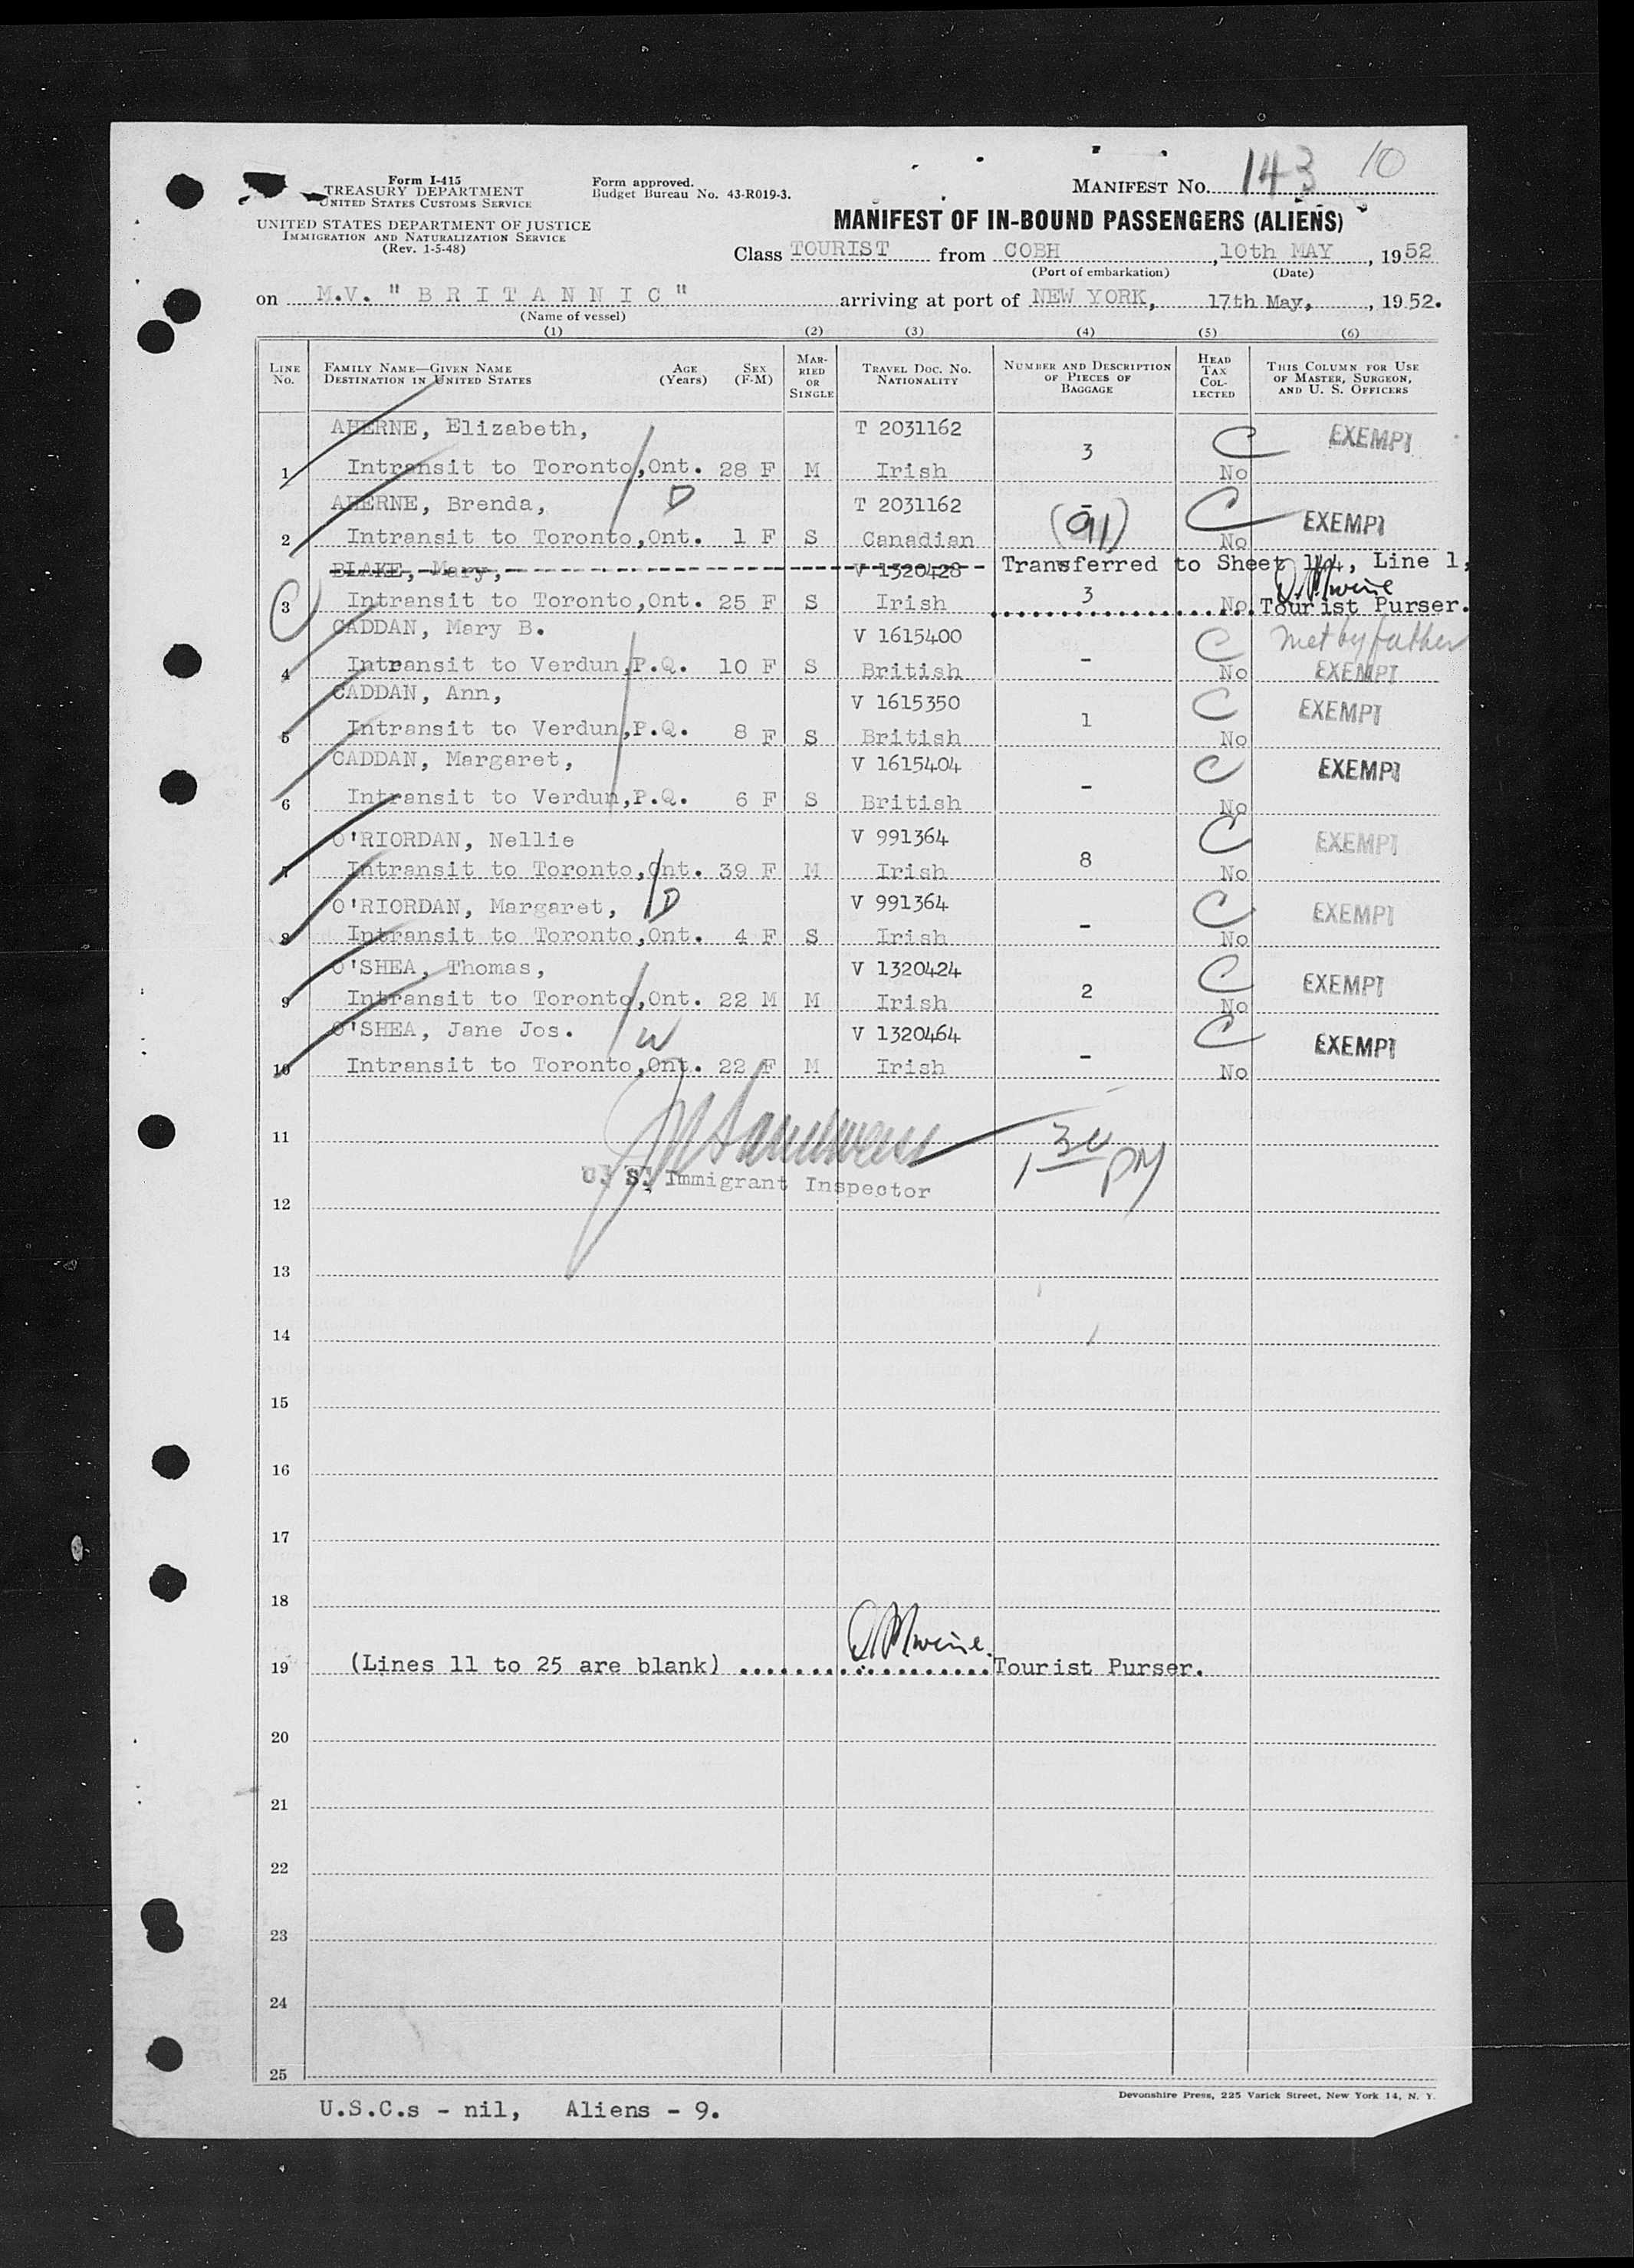 Form I-415
TREASURY DEPARTMENT
UNITED STATES CUSTOMS SERVICE
UNITED STATES DEPARTMENT OF JUSTICE
IMMIGRATION AND NATURALIZATION SERVICE
(Rev. 1-5-48)
Form approved.
Budget Bureau No. 43-R019-3.
MANIFEST NO. 143 10
MANIFEST OF IN-BOUND PASSENGERS (ALIENS)
Class TOURIST from COBH, 10th MAY, 1952
(Port of embarkation) (Date)
on M.V. "BRITANNIC" arriving at port of NEW YORK, 17th May, 1952.
(Name of vessel)
(1) (2) (3) (4) (5) (6)
LINE No. FAMILY NAME—GIVEN NAME DESTINATION IN UNITED STATES AGE (Years) SEX (F-M) MARRIED OR SINGLE TRAVEL DOC. NO. NATIONALITY NUMBER AND DESCRIPTION OF PIECES OF BAGGAGE HEAD TAX COLLECTED THIS COLUMN FOR USE OF MASTER, SURGEON, AND U. S. OFFICERS
AHERNE, Elizabeth, T 2031162 3 C EXEMPT
1 Intransit to Toronto,Ont. 28 F M Irish No
AHERNE, Brenda, D T 2031162 - (911) C EXEMPT
2 Intransit to Toronto,Ont. 1 F S Canadian No
BLAKE, Mary, V 1320428 Transferred to Sheet 144, Line 1,
3 Intransit to Toronto,Ont. 25 F S Irish 3 No Tourist Purser.
CADDAN, Mary B. V 1615400 - C met by father
4 Intransit to Verdun,P.Q. 10 F S British No EXEMPT
CADDAN, Ann, V 1615350 1 C EXEMPT
5 Intransit to Verdun,P.Q. 8 F S British No
CADDAN, Margaret, V 1615404 - C EXEMPT
6 Intransit to Verdun,P.Q. 6 F S British No
O'RIORDAN, Nellie V 991364 8 C EXEMPT
7 Intransit to Toronto,Ont. 39 F M Irish No
O'RIORDAN, Margaret, D V 991364 - C EXEMPT
8 Intransit to Toronto,Ont. 4 F S Irish No
O'SHEA, Thomas, V 1320424 2 C EXEMPT
9 Intransit to Toronto,Ont. 22 M M Irish No
O'SHEA, Jane Jos. W V 1320464 - C EXEMPT
10 Intransit to Toronto,Ont. 22 F M Irish No
11 1 30 PM
U. S. Immigrant Inspector
12
13
14
15
16
17
18
19 (Lines 11 to 25 are blank) Tourist Purser.
20
21
22
23
24
25
Devonshire Press, 225 Varick Street, New York 14, N. Y.
U.S.C.s - nil, Aliens - 9.